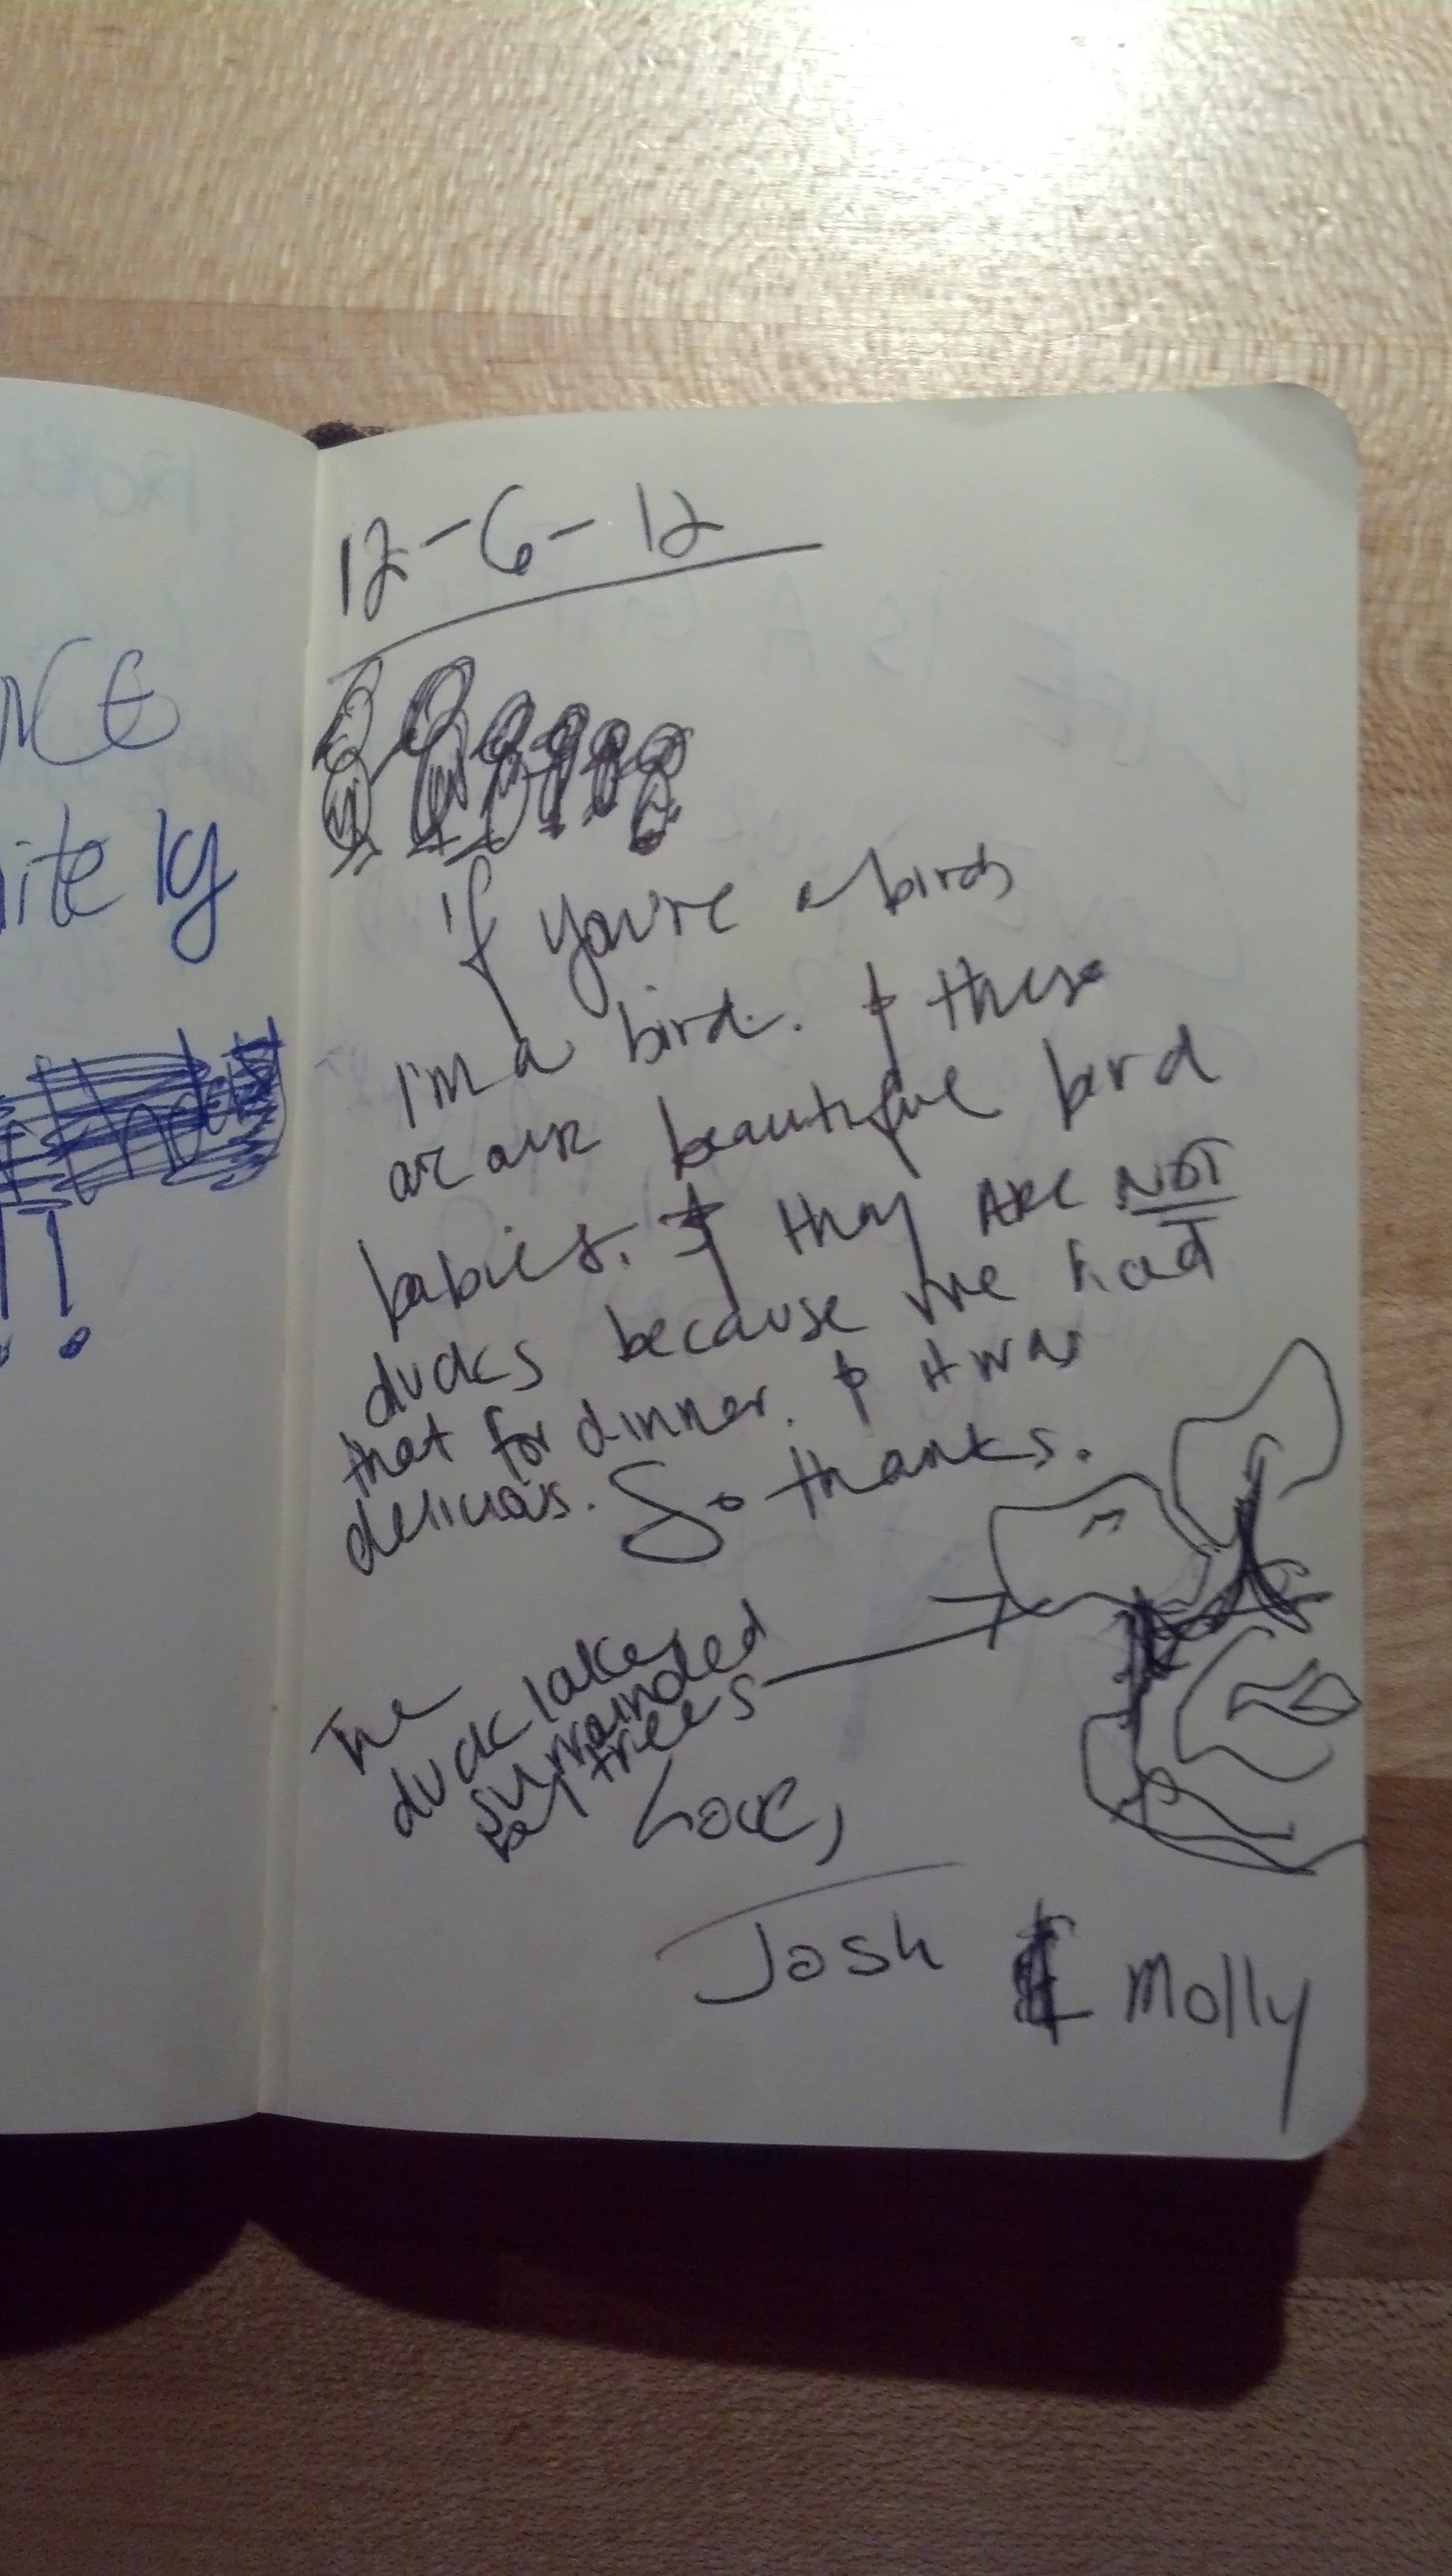 NCE
itely
!
12-6-12
if you're a bird
I'm a bird. & these
are our beautiful bird
babies. & they ARE NOT
ducks because we had
that for dinner. & it was
delicious. So thanks.
The
duck lake
surrounded
by trees
Love,
Josh & Molly